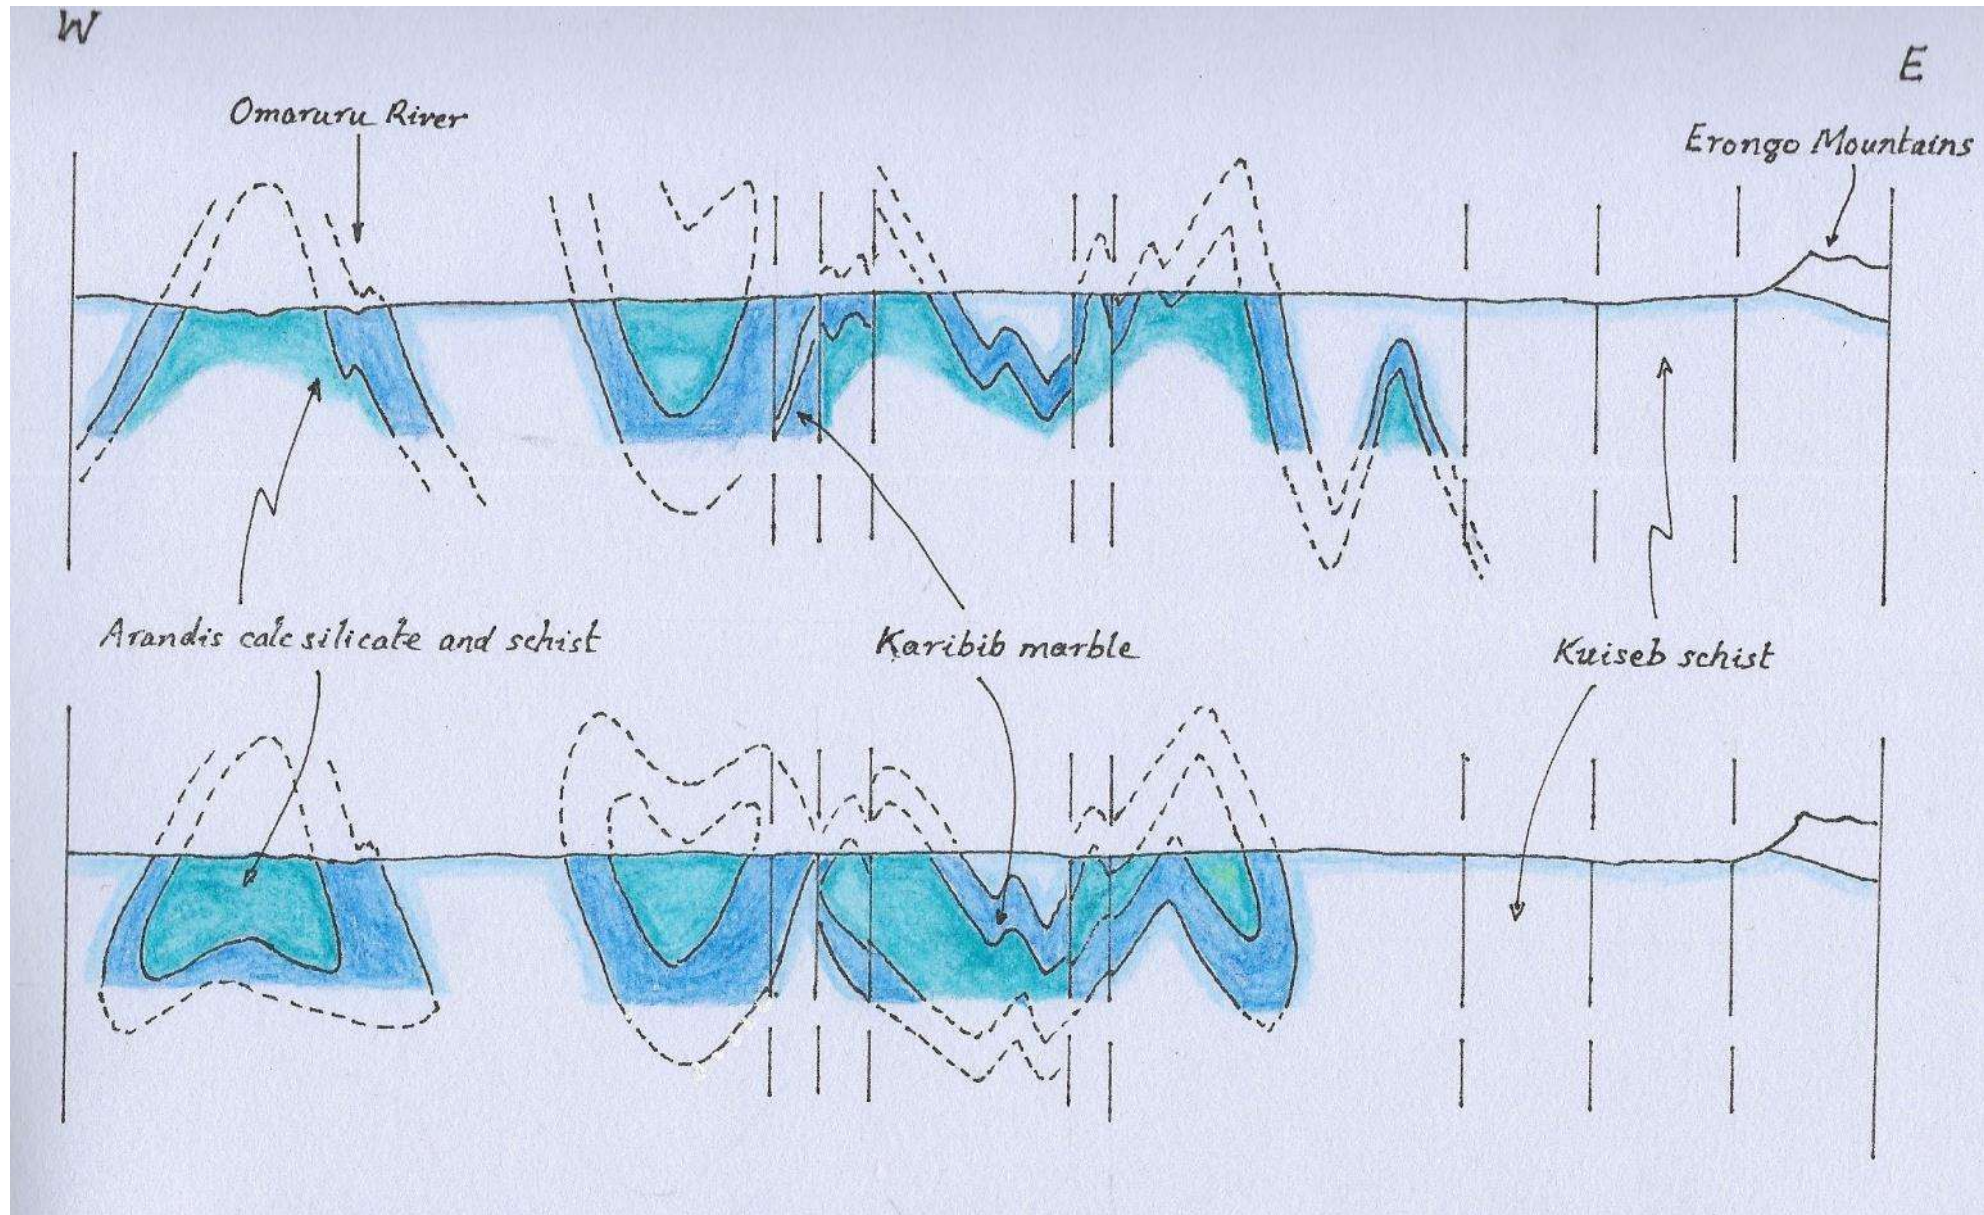 W
E
Omaruru River
Erongo Mountains
Arandis calc silicate and schist
Karibib marble
Kuiseb schist